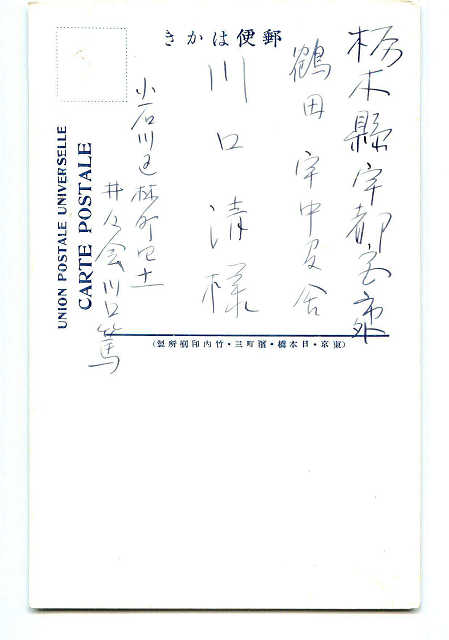 郵便はかき
栃木縣宇都宮市外
鶴田 宇中寄宿舍
川口清様
小石川區林町四十一
井人会川口篤
UNION POSTALE UNIVERSELLE
CARTE POSTALE
(東京・日本橋・濱町三・竹内印刷所製)